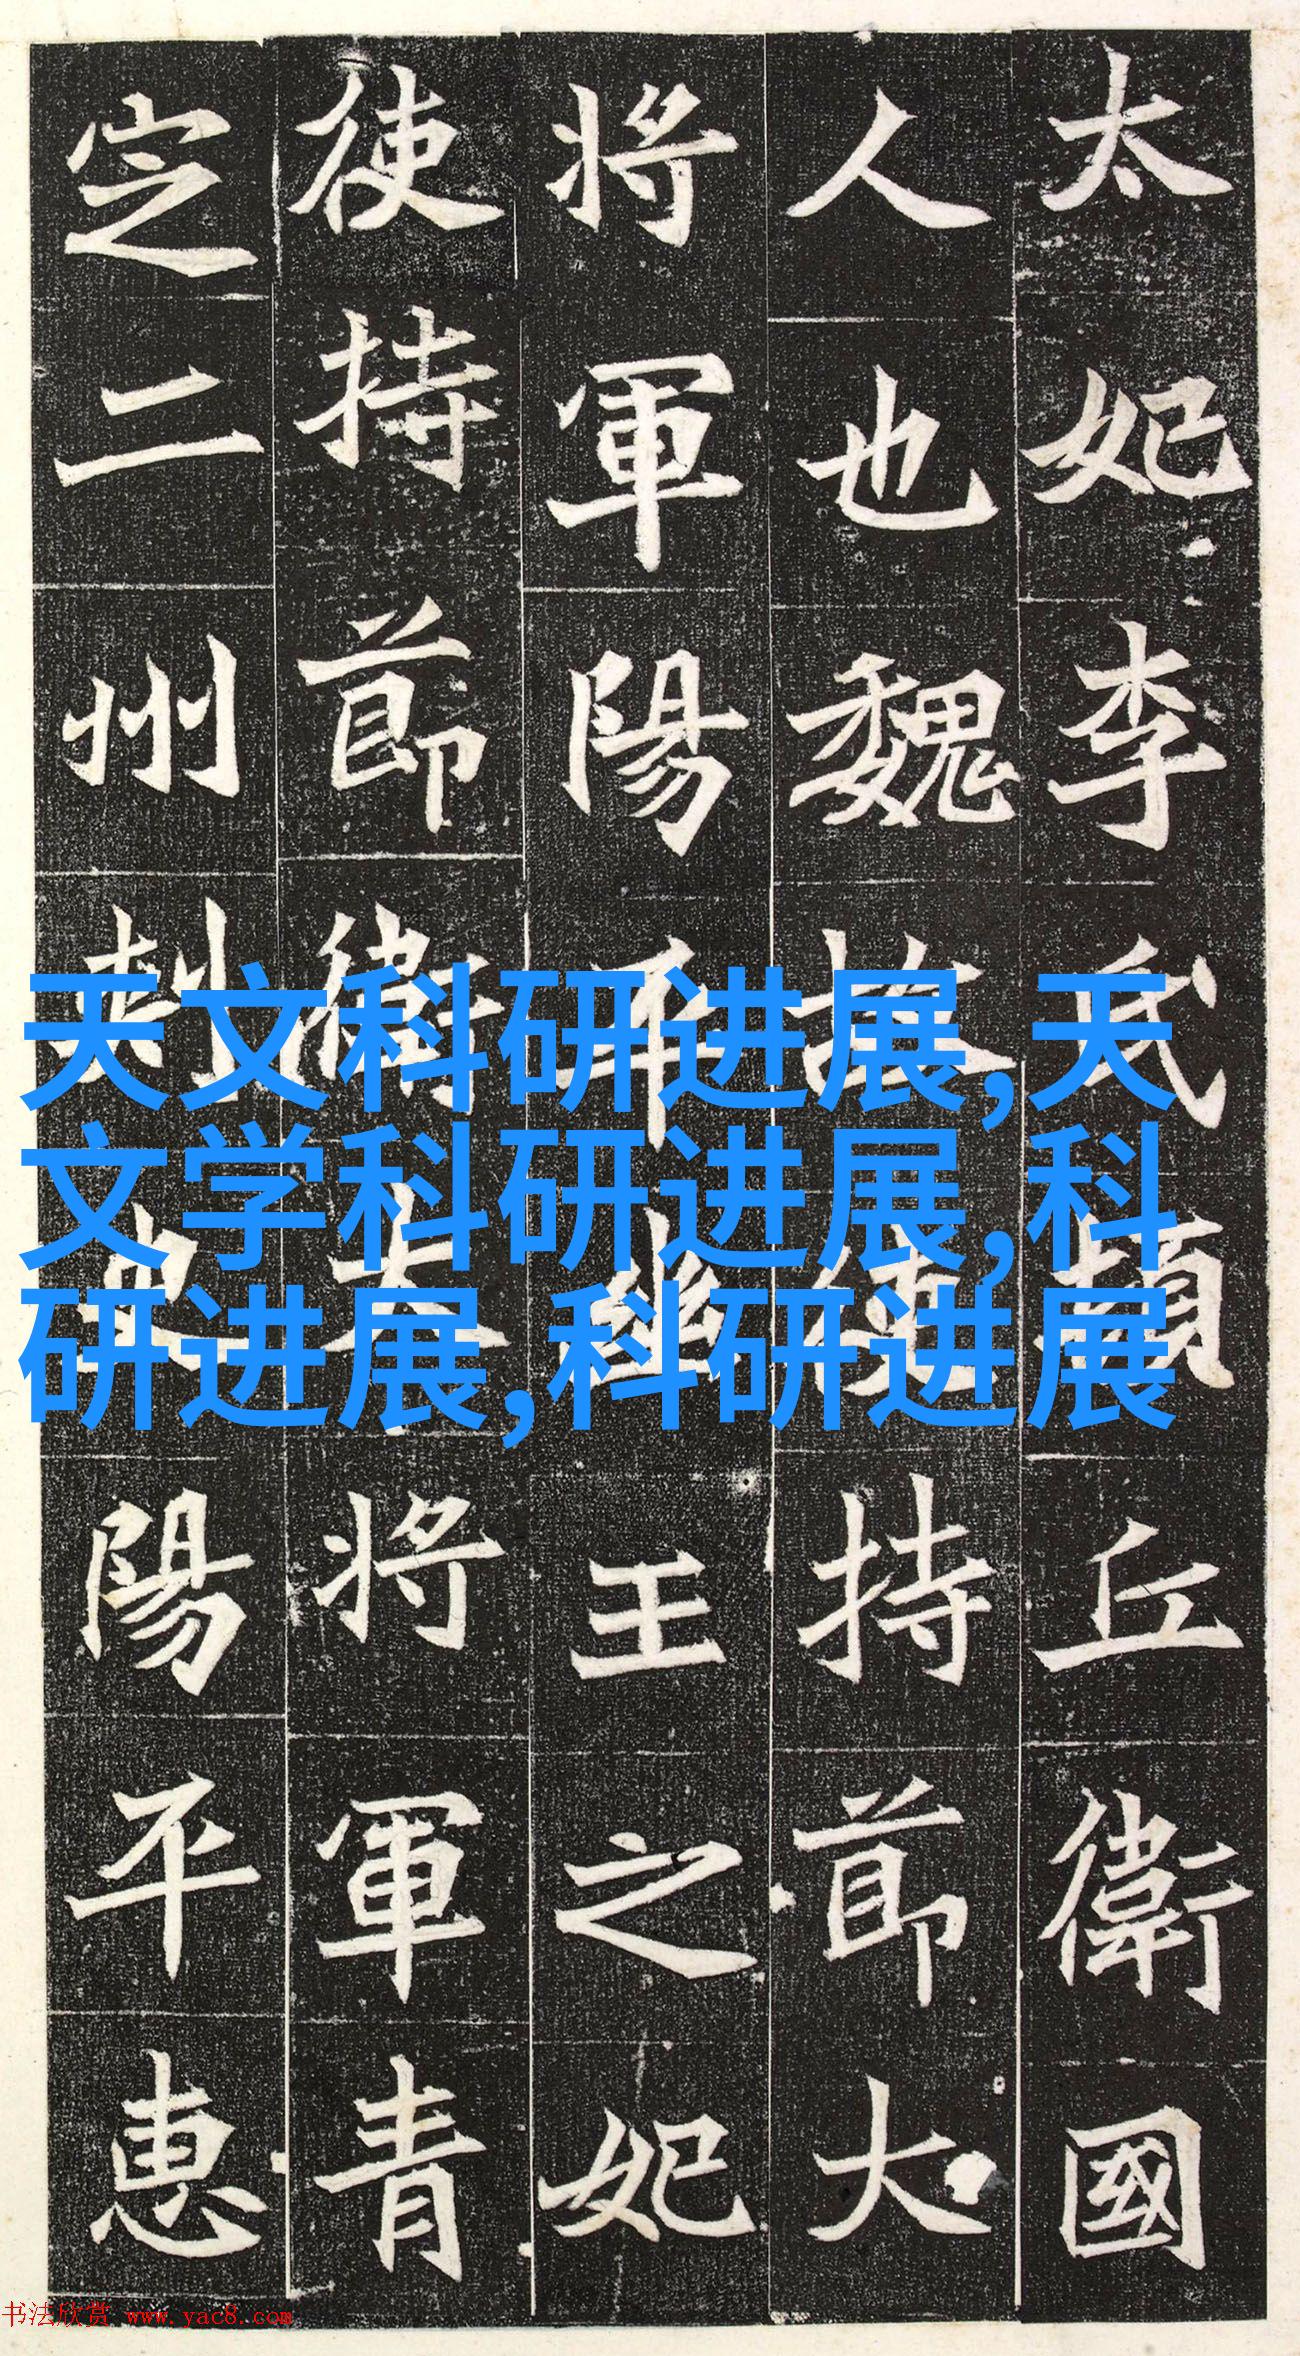 太妃李氏頓丘衛國
人也魏故使持節大
將軍陽平幽王之妃
使持節衛大將軍青
定二州刺史陽平惠
天文科研进展,天
文学科研进展,科
研进展,科研进展
书法欣赏 www.yac8.com